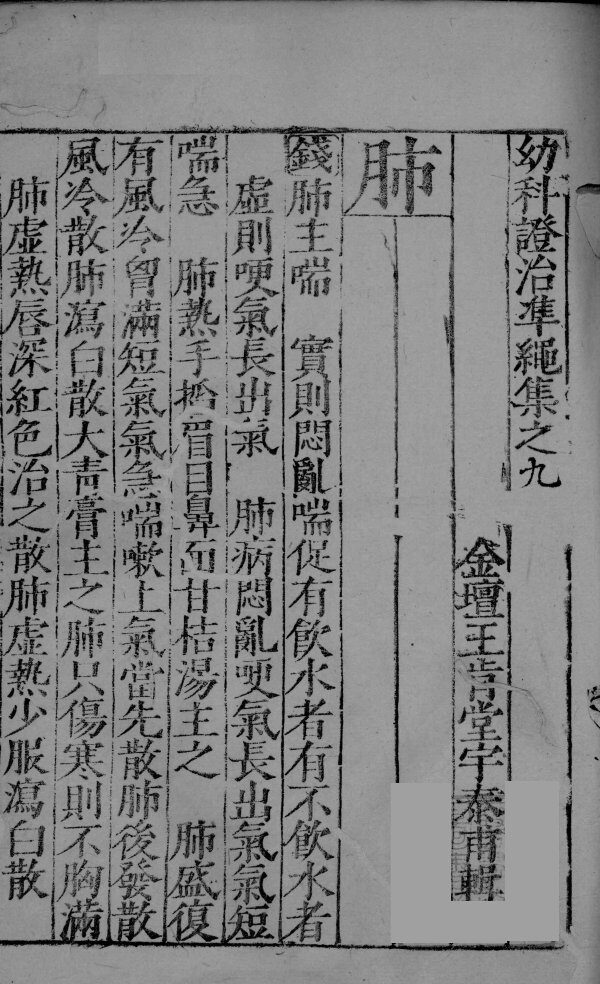 幼科證治準繩集之九
金壇王肯堂宇泰甫輯
肺
錢肺主喘　實則悶亂喘促有飲水者有不飲水者
虛則哽氣長出氣　肺病悶亂哽氣長出氣氣短
喘急　肺熱手掐眉目鼻面甘桔湯主之　肺盛復
有風冷胷滿短氣氣急喘嗽上氣當先散肺後發散
風冷散肺瀉白散大青膏主之肺只傷寒則不胸滿
肺虛熱唇深紅色治之散肺虛熱少服瀉白散